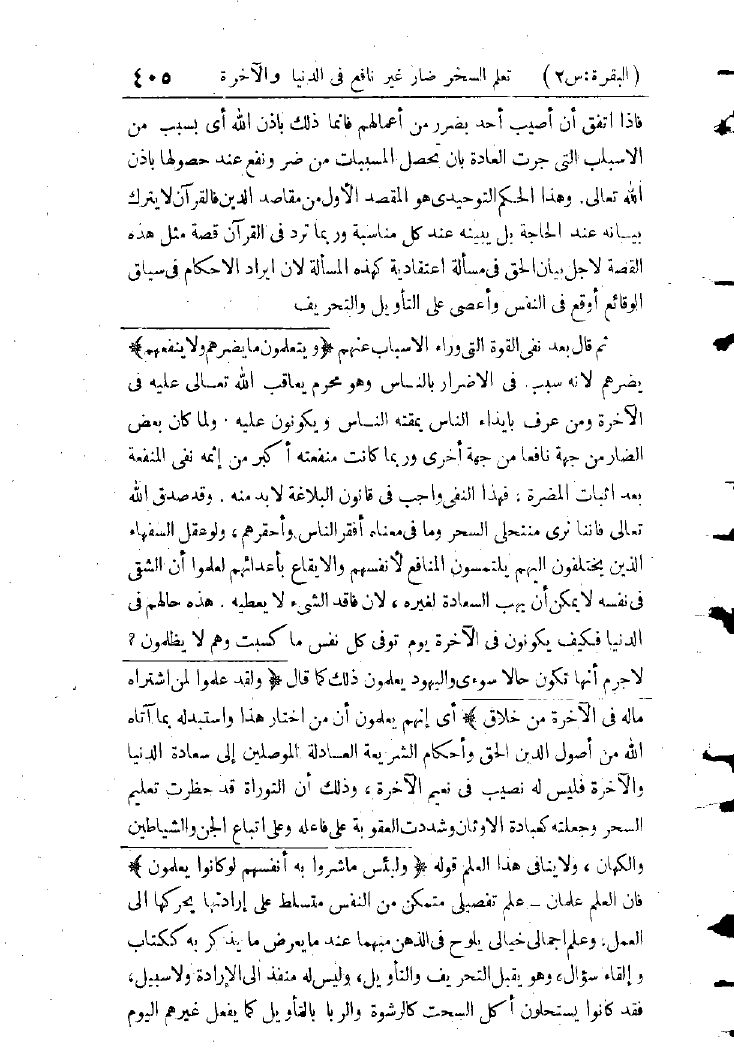 (البقرة : س ٢) تعلم السحر ضار غير نافع فى الدنيا والآخرة ٤٠٥
فاذا اتفق أن أصيب أحد بضرر من أعمالهم فانما ذلك باذن الله أى بسبب من
الاسباب التى جرت العادة بان تحصل المسببات من ضر ونفع عند حصولها باذن
الله تعالى. وهذا الحكم التوحيدى هو المقصد الأول من مقاصد الدين فالقرآن لا يترك
بيانه عند الحاجة بل يبينه عند كل مناسبة وربما ترد فى القرآن قصة مثل هذه
القصة لاجل بيان الحق فى مسألة اعتقادية كهذه المسألة لان ايراد الاحكام فى سياق
الوقائع أوقع فى النفس وأعصى على التأويل والتحريف
ثم قال بعد نفى القوة التى وراء الاسباب عنهم ﴿ ويتعلمون ما يضرهم ولا ينفعهم ﴾
يضرهم لانه سبب. فى الاضرار بالناس وهو محرم يعاقب الله تعالى عليه فى
الآخرة ومن عرف بايذاء الناس يمقته الناس ويكونون عليه . ولما كان بعض
الضار من جهة نافعا من جهة أخرى وربما كانت منفعته أكبر من إثمه نفى المنفعة
بعد اثبات المضرة ، فهذا النفى واجب فى قانون البلاغة لا بد منه . وقد صدق الله
تعالى فاننا نرى منتحلى السحر وما فى معناه أفقر الناس وأحقرهم ، ولو عقل السفهاء
الذين يختلفون اليهم يلتمسون المنافع لأنفسهم والايقاع بأعدائهم لعلموا أن الشقى
فى نفسه لا يمكن أن يهب السعادة لغيره ، لان فاقد الشىء لا يعطيه . هذه حالهم فى
الدنيا فكيف يكونون فى الآخرة يوم توفى كل نفس ما كسبت وهم لا يظلمون ؟
لا جرم أنها تكون حالا سوءى واليهود يعلمون ذلك كما قال ﴿ ولقد علموا لمن اشتراه
ماله فى الآخرة من خلاق ﴾ أى إنهم يعلمون أن من اختار هذا واستبدله بما آتاه
الله من أصول الدين الحق وأحكام الشريعة العادلة الموصلين إلى سعادة الدنيا
والآخرة فليس له نصيب فى نعيم الآخرة ، وذلك أن التوراة قد حظرت تعليم
السحر وجعلته كعبادة الاوثان وشددت العقوبة على فاعله وعلى اتباع الجن والشياطين
والكهان ، ولا ينافى هذا العلم قوله ﴿ ولبئس ما شروا به أنفسهم لو كانوا يعلمون ﴾
فان العلم علمان ـ علم تفصيلى متمكن من النفس متسلط على إرادتها يحركها الى
العمل، وعلم اجمالى خيالى يلوح فى الذهن مبهما عند ما يعرض ما يذكر به ككتاب
وإلقاء سؤال، وهو يقبل التحريف والتأويل، وليس له منفذ الى الإرادة ولا سبيل،
فقد كانوا يستحلون أكل السحت كالرشوة والربا بالتأويل كما يفعل غيرهم اليوم